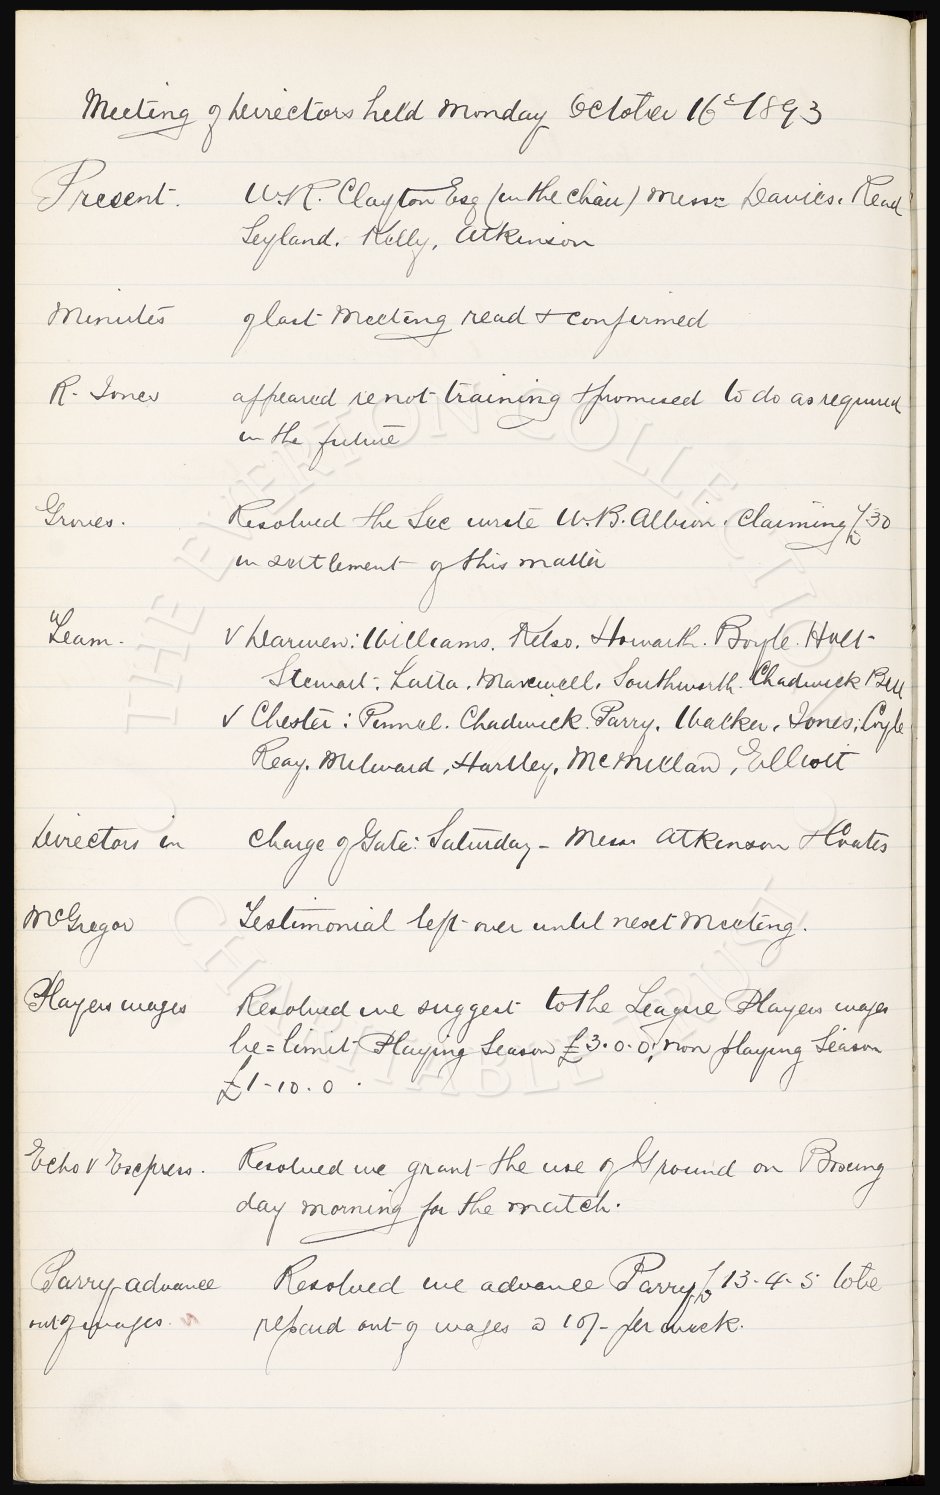 Meeting of Directors held Monday October 16th 1893
Present. W.R. Clayton Esq (in the chair) Messrs Davies. Read
Leyland. Kelly. Atkinson
Minutes of last Meeting read & confirmed
R. Jones appeared re not training & promised to do as required
in the future
Groves. Resolved the Sec write W.B. Albion claiming £30
in settlement of this matter
Team. v Darwen: Williams. Kelso. Howarth. Boyle. Holt
Stewart. Latta. Maxwell. Southworth. Chadwick Bell
v Chester: Pinnel. Chadwick. Parry. Walker. Jones. Coyle
Reay. Milward, Hartley, McMillan, Elliott
Directors in charge of Gate: Saturday - Messrs Atkinson & Coates
McGregor Testimonial left over until next Meeting.
Players wages Resolved we suggest to the League Players wages
be = limit Playing Season £3.0.0, non playing Season
£1-10.0.
Echo v Express. Resolved we grant the use of Ground on Boxing
day morning for the match.
Parry advance Resolved we advance Parry £13-4-5 to be
out of wages. repaid out of wages @ 10/- per week.
THE EVERTON COLLECTION
CHARITABLE TRUST